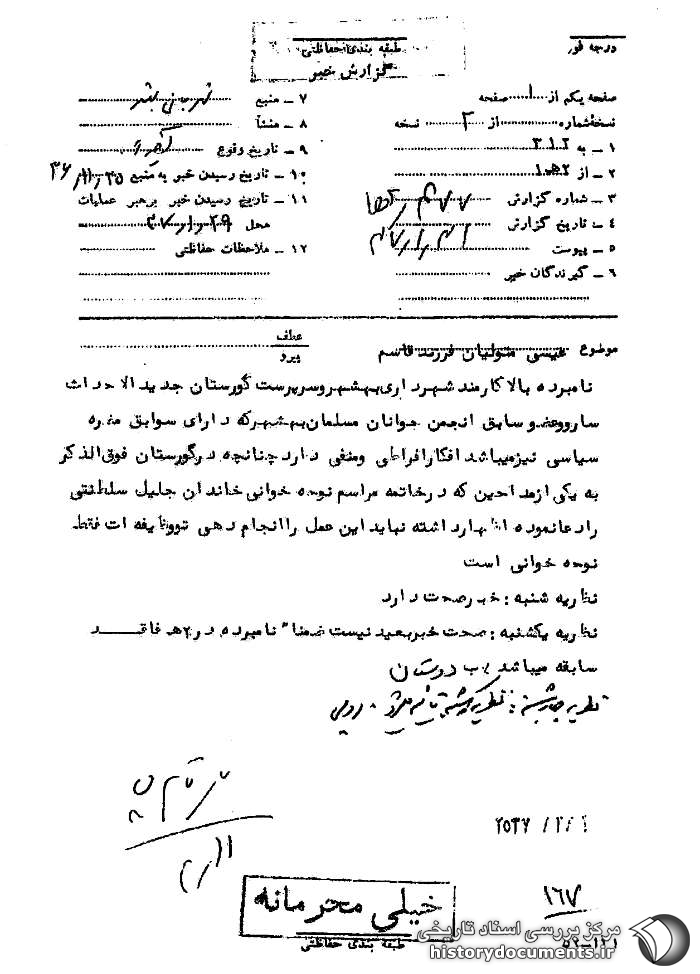 درجه فور
طبقه بندی حفاظتی
گزارش خبر
صفحه یکم از ۱ صفحه
نسخه شماره از ۲ نسخه
۱ – به ۳۱۲
۲ – از ۱۰ه۲
۳ – شماره گزارش
۴ – تاریخ گزارش
۵ – پیوست
۶ – گیرندگان خبر
۷ – منبع
۸ – منشأ
۹ – تاریخ وقوع
۱۰ – تاریخ رسیدن خبر به منبع ۳۶/۱۱/۲۵
۱۱ – تاریخ رسیدن خبر برهبر عملیات
محل ۳۷/۱/۲۹
۱۲ – ملاحظات حفاظتی
موضوع عیسی متولیان فرزند قاسم
عطف
پیرو
نامبرده بالا کارمند شهرداری بهشهر و سرپرست گورستان جدید الاحداث
سارو و عضو سابق انجمن جوانان مسلمان بهشهر که دارای سوابق مضره
سیاسی نیز میباشد افکار افراطی و منفی دارد چنانچه در گورستان فوق الذکر
به یکی از مداحین که در خاتمه مراسم نوحه خوانی خاندان جلیل سلطنتی
را دعا نموده اظهار داشته نباید این عمل را انجام دهی تو وظیفه ات فقط
نوحه خوانی است
نظریه شنبه : خبر صحت دارد
نظریه یکشنبه : صحت خبر بعید نیست ضمنا" نامبرده در ۲ه۱ فاقد
سابقه میباشد. ب دوستان
نظریه چهارشنبه : نظریه یکشنبه تأیید میگردد.
۲۵۳۷/۲/۶
۱۶۷
خیلی محرمانه
طبقه بندی حفاظتی
۵۲-۱۲۱
مرکز بررسی اسناد تاریخی
historydocuments.ir